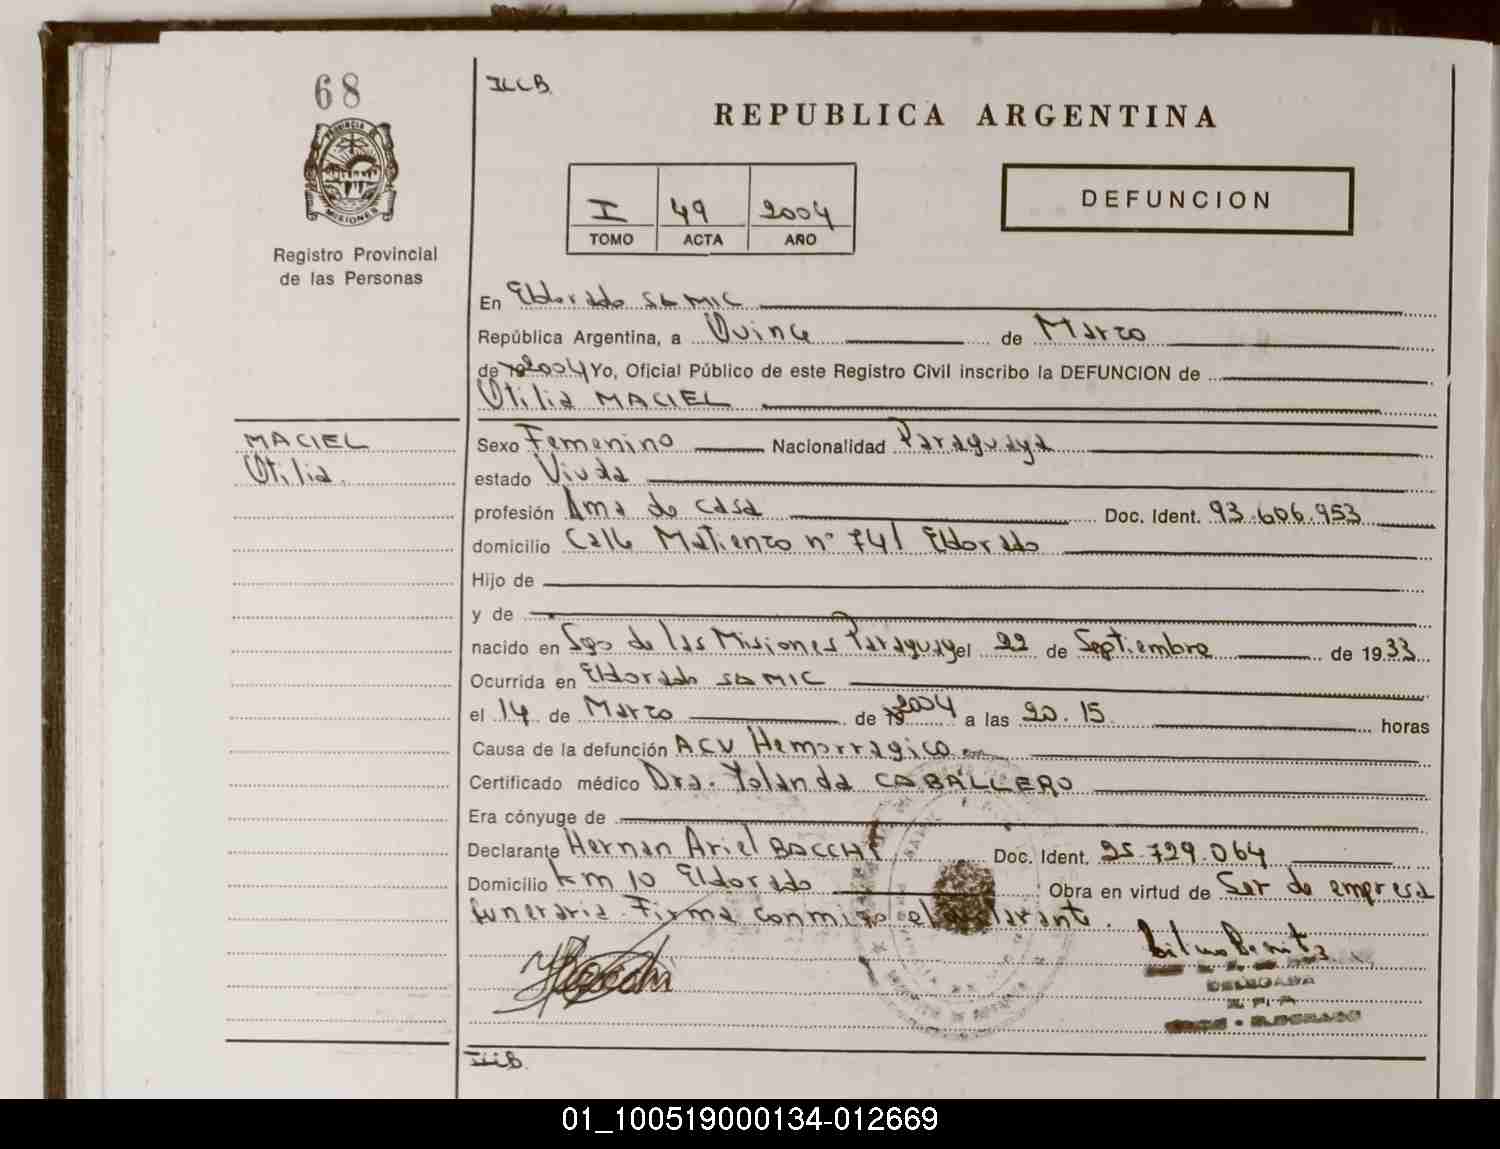 68
ILLB
REPUBLICA ARGENTINA
PROVINCIA DE
MISIONES
I 49 2004
TOMO ACTA AÑO
DEFUNCION
Registro Provincial
de las Personas
En Eldorado SAMIC
República Argentina, a Quince de Marzo
de 2004 Yo, Oficial Público de este Registro Civil inscribo la DEFUNCION de
Otilia MACIEL
MACIEL
Otilia.
Sexo Femenino Nacionalidad Paraguaya
estado Viuda
profesión Ama de casa Doc. Ident. 93.606.953
domicilio Calle Matienzo nº 741 Eldorado
Hijo de
y de
nacido en Sgo de las Misiones Paraguay el 22 de Septiembre de 1933
Ocurrida en Eldorado SAMIC
el 14 de Marzo de 2004 a las 20.15 horas
Causa de la defunción ACV Hemorragico
Certificado médico Dra. Yolanda CABALLERO
Era cónyuge de
Declarante Hernan Ariel BOCCHI Doc. Ident. 25.729.064
Domicilio km 10 Eldorado Obra en virtud de Ser de empresa
funeraria. Firma conmigo el declarante.
Bocchi
DELEGADA
ELDORADO
01_100519000134-012669